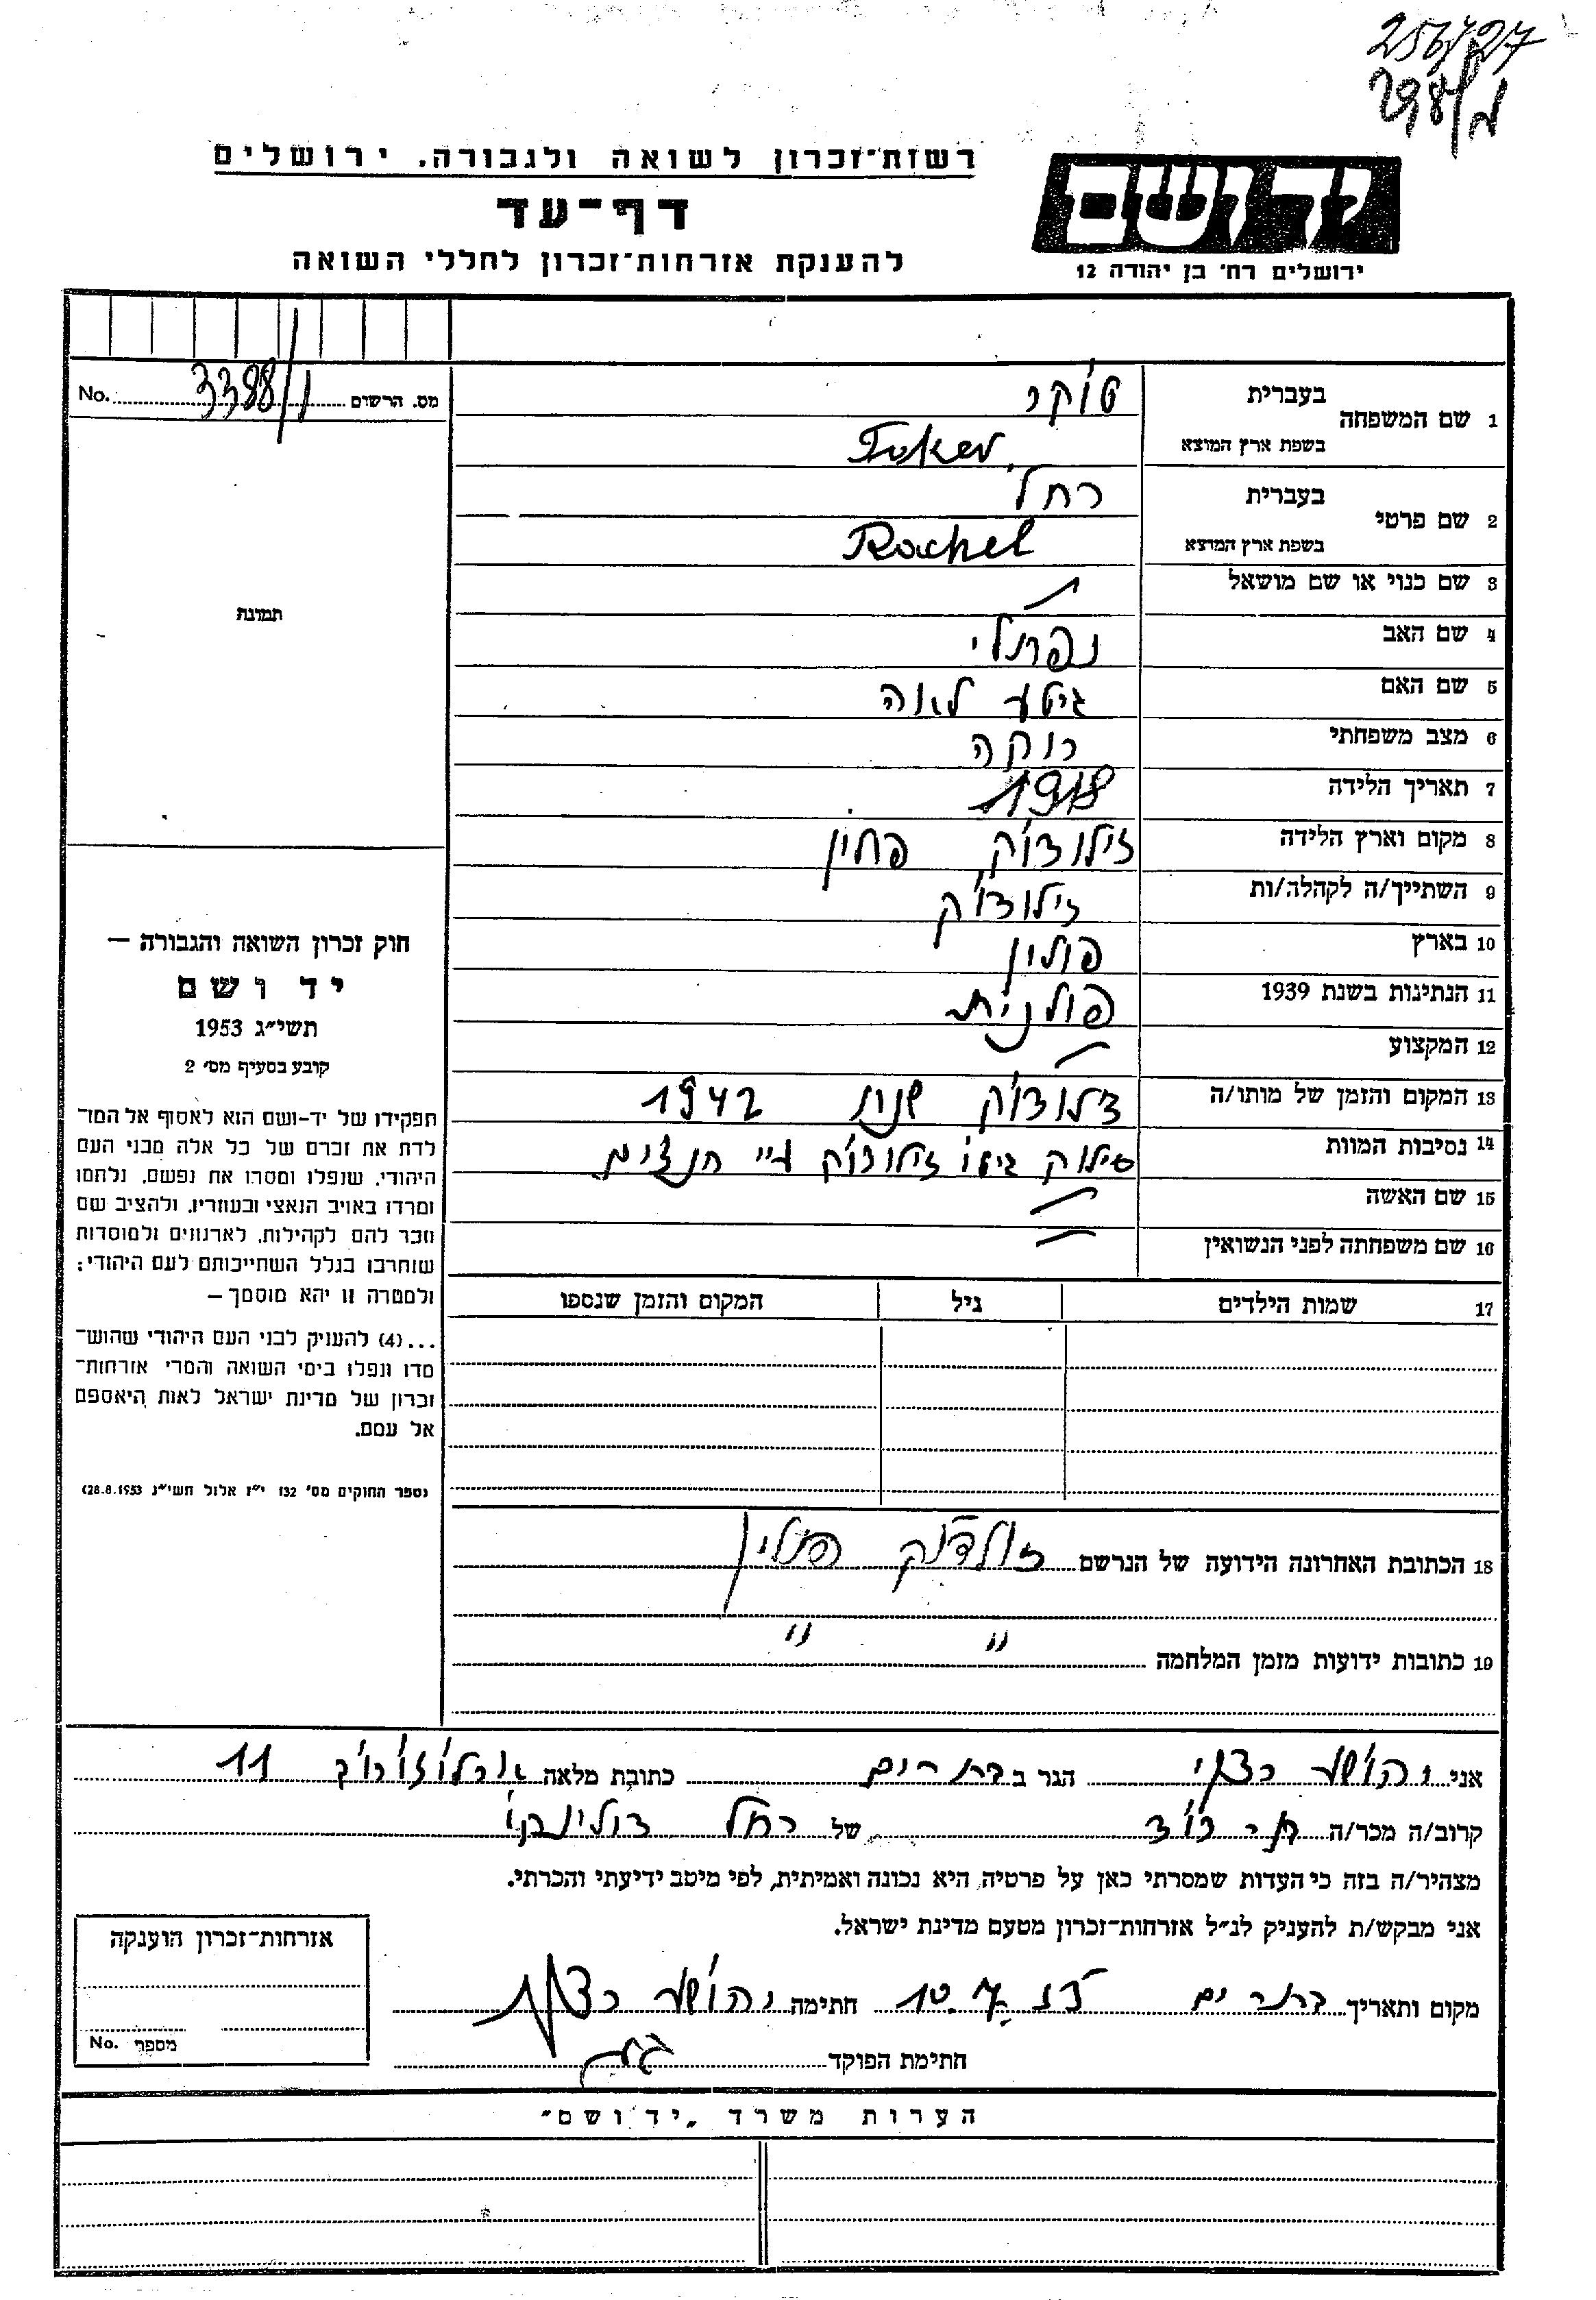 256/27
298/מ
רשות־זכרון לשואה ולגבורה, ירושלים
דף־עד
להענקת אזרחות־זכרון לחללי השואה
יד ושם
ירושלים רח׳ בן יהודה 12
מס. הרשום 3388/1 No.
1 שם המשפחה בעברית טוקר
בשפת ארץ המוצא Tuker
2 שם פרטי בעברית רחל
בשפת ארץ המוצא Rachel
3 שם כנוי או שם מושאל
4 שם האב נפתלי
5 שם האם גיטע לאה
6 מצב משפחתי רוקה
7 תאריך הלידה 1918
8 מקום וארץ הלידה זילודוק פולין
9 השתייך/ה לקהלה/ות זילודוק
10 בארץ פולין
11 הנתינות בשנת 1939 פולנית
12 המקצוע
13 המקום והזמן של מותו/ה זילודוק שנת 1942
14 נסיבות המוות סילוק גיטו זילודוק ע״י הנצים
15 שם האשה
16 שם משפחתה לפני הנשואין
17 שמות הילדים גיל המקום והזמן שנספו
תמונת
חוק זכרון השואה והגבורה —
יד ושם
תשי״ג 1953
קובע בסעיף מס׳ 2
תפקידו של יד-ושם הוא לאסוף אל המו־
לדת את זכרם של כל אלה מבני העם
היהודי, שנפלו ומסרו את נפשם, נלחמו
ומרדו באויב הנאצי ובעוזריו, ולהציב שם
וזכר להם לקהילות, לארגונים ולמוסדות
שנחרבו בגלל השתייכותם לעם היהודי;
ולמטרה זו יהא מוסמך —
...(4) להעניק לבני העם היהודי שהוש־
מדו ונפלו בימי השואה והמרי אזרחות־
זכרון של מדינת ישראל לאות היאספם
אל עמם.
(ספר החוקים מס׳ 132 י״ז אלול תשי״ג 28.8.1953)
18 הכתובת האחרונה הידועה של הנרשם זולדוק פולין
19 כתובות ידועות מזמן המלחמה " "
אני יהושע הגר ב בת ים כתובת מלאה ארלוזורוב 11
קרוב/ה מכר/ה של רחל
מצהיר/ה בזה כי העדות שמסרתי כאן על פרטיה, היא נכונה ואמיתית, לפי מיטב ידיעתי והכרתי.
אני מבקש/ת להעניק לנ״ל אזרחות־זכרון מטעם מדינת ישראל.
מקום ותאריך בת ים 10.7 חתימה יהושע
חתימת הפוקד
אזרחות־זכרון הוענקה
מספרי No.
הערות משרד „יד ושם"